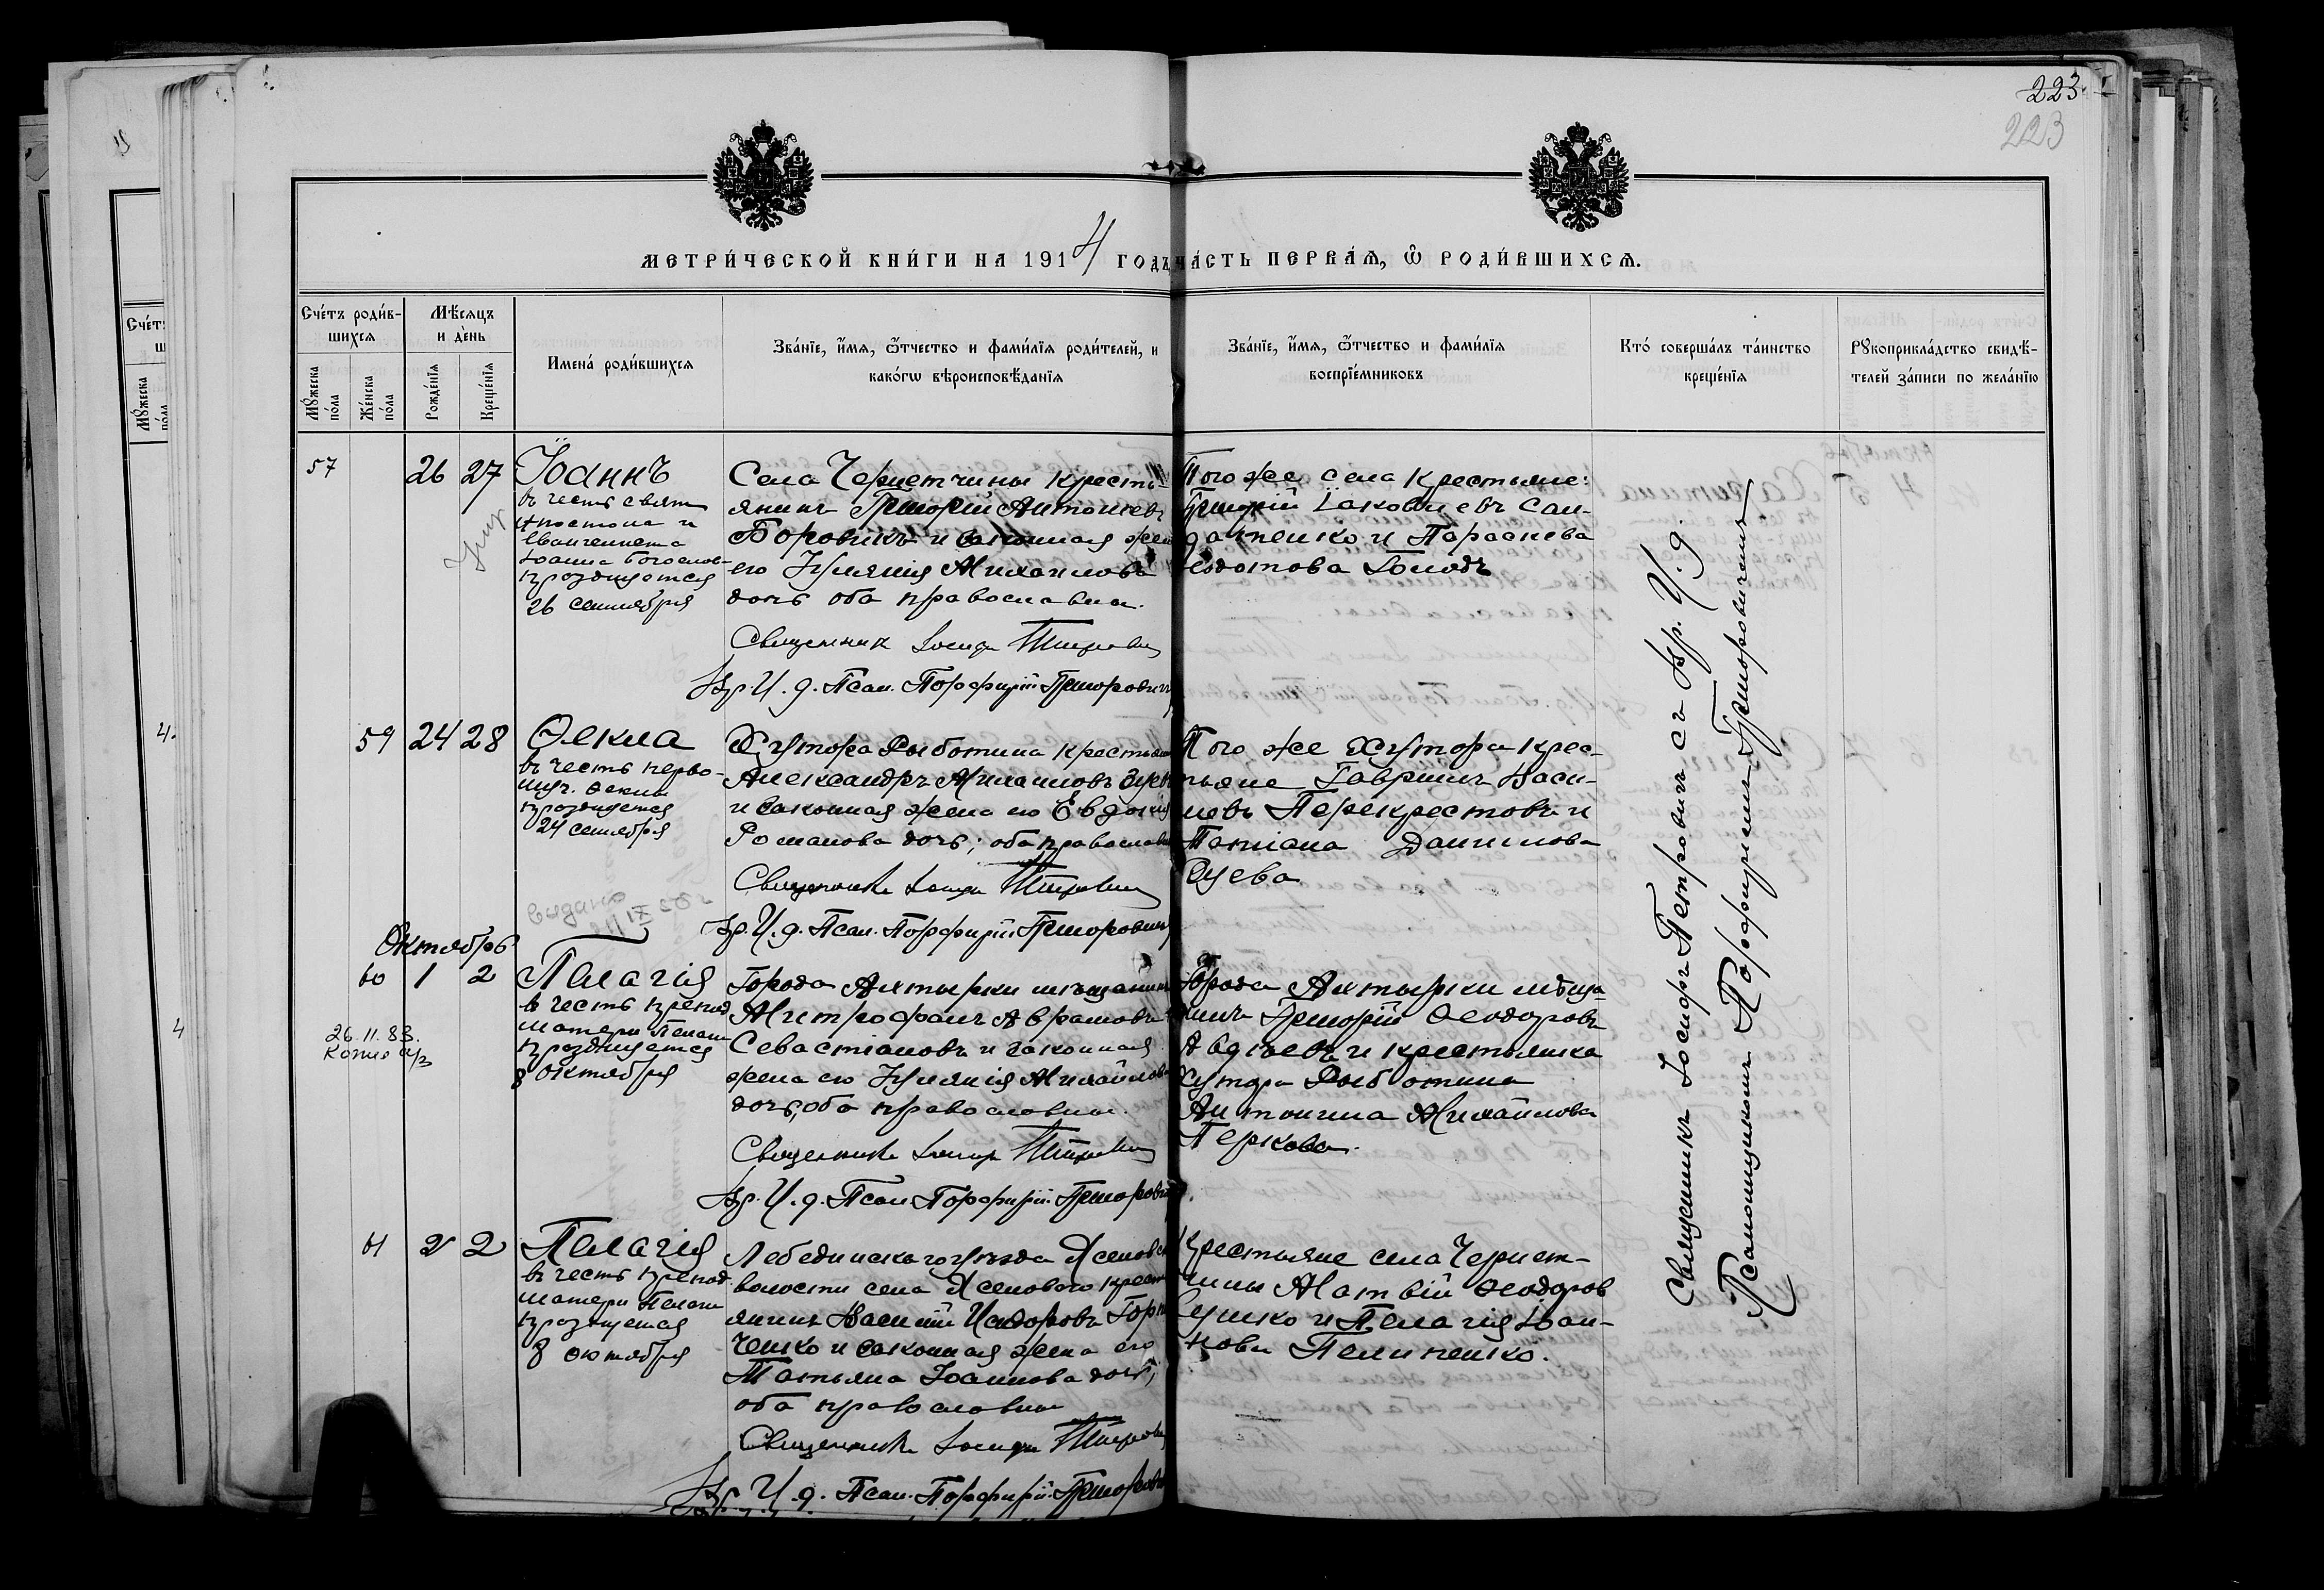 223
223
МЕТРИ́ЧЕСКОЙ КНИ́ГИ НА 1914 ГОДЪ ЧА́СТЬ ПЕ́РВАЯ, Ѿ РОДИ́ВШИХСЯ.
Сче́тъ роди́в-
шихся
Мѣ́сяцъ
и де́нь
Му́жеска
по́ла
Же́нска
по́ла
Рожде́нїя
Креще́нїя
Имена́ роди́вшихся
Зва́нїе, и́мя, ѻ́тчество и фами́лїя роди́телей, и
како́гѡ вѣроисповѣ́данїя
Зва́нїе, и́мя, ѻ́тчество и фами́лїя
воспрїе́мниковъ
Кто́ соверша́лъ та́инство
креще́нїя
Рꙋкоприкла́дство свидѣ́-
телей за́писи по жела́нїю
57 26 27
Іоаннъ
въ честь свят
Апостола и
Евангелиста
Іоанна Богослов-
празднуется
26 сентября
Села Чернетчины кресть
янинъ Григорій Антоніевъ
Боровикъ и законная жен
его Іуліанія Михаилова
дочь оба православны.
Священник Іосифъ Петрович
Вр. И. д. Псал. Порфирій Григорович
Того же села крестьяне:
Григорій Іаковлевъ Сан-
даченко и Параскева
Ѳеодотова
59 24 28
Ѳекла
въ честь перво-
муч. Ѳеклы
празднуется
24 сентября
Хутора Рыботина крестьян
Александръ Михаиловъ Зуев
и законная жена его Евдокія
Романова дочь; оба православн
Священникъ Іосифъ Петрович
Вр. И. д. Псал. Порфирій Григорович
Того же Хутора крес-
тьяне Гавріилъ Васи-
левъ Перекрестовъ и
Татіана Даниилова
Зуева
Выдано
Октябрь
60 1 2
26.11.83.
Копия а/з
Пелагія
въ честь препод
матери Пелагіи
празднуется
8 октября
Города Ахтырки мѣщанинъ
Митрофанъ Аврамовъ
Севастіановъ и законная
жена его Іуліанія Михайлова
дочь, оба православны.
Священникъ Іосифъ Петрович
Вр. И. д. Псал. Порфирій Григорович
Города Ахтырки мѣща-
нинъ Григорій Ѳеодоровъ
Авдіевъ и крестьянка
Хутора Рыботина
Антонина Михайлова
Перкова.
61 2 2
Пелагія
въ честь препод
матери Пелагіи
празднуется
8 октября
Лебединскаго уѣзда Ясеновск
волости села Ясеноваго крест
янинъ Василій Исидоровъ Горп
ченко и законная жена его
Татьяна Іоаннова дочь;
оба православны
Священникъ Іосифъ Петрович
Вр. И. д. Псал. Порфирій Григорович
Крестьяне села Чернет-
чины Матвій Ѳеодоров
Сушко и Пелагія Іоан-
нова Пелипенко.
Священникъ Іосифъ Петровичъ съ Вр. И. д.
Псаломщикомъ Порфиріемъ Григоровичемъ